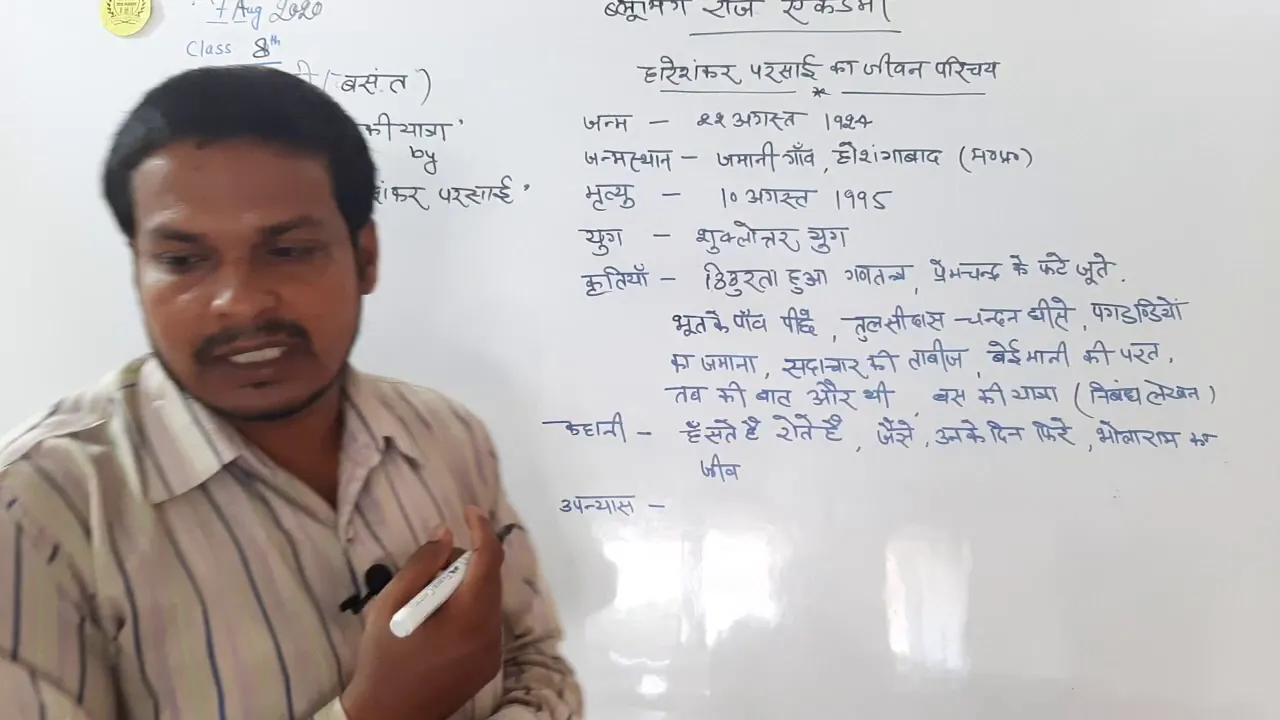 7 Aug 2020
Class 8th
(बसंत)
की यात्रा'
by
शंकर परसाई'
ब्लूमिंग रोज एकेडमी
हरिशंकर परसाई का जीवन परिचय
*
जन्म - २२ अगस्त १९२४
जन्मस्थान - जमानी गाँव, होशंगाबाद (म०प्र०)
मृत्यु - १० अगस्त १९९५
युग - शुक्लोत्तर युग
कृतियाँ - ठिठुरता हुआ गणतन्त्र, प्रेमचन्द्र के फटे जूते.
भूत के पाँव पीछे, तुलसीदास चन्दन घीसे, पगडण्डियों
का जमाना, सदाचार की ताबीज, बेईमानी की परत,
तब की बात और थी, बस की यात्रा (निबंध लेखन)
कहानी - हँसते है रोते है, जैसे, उनके दिन फिरे, भोलाराम का
जीव
उपन्यास -